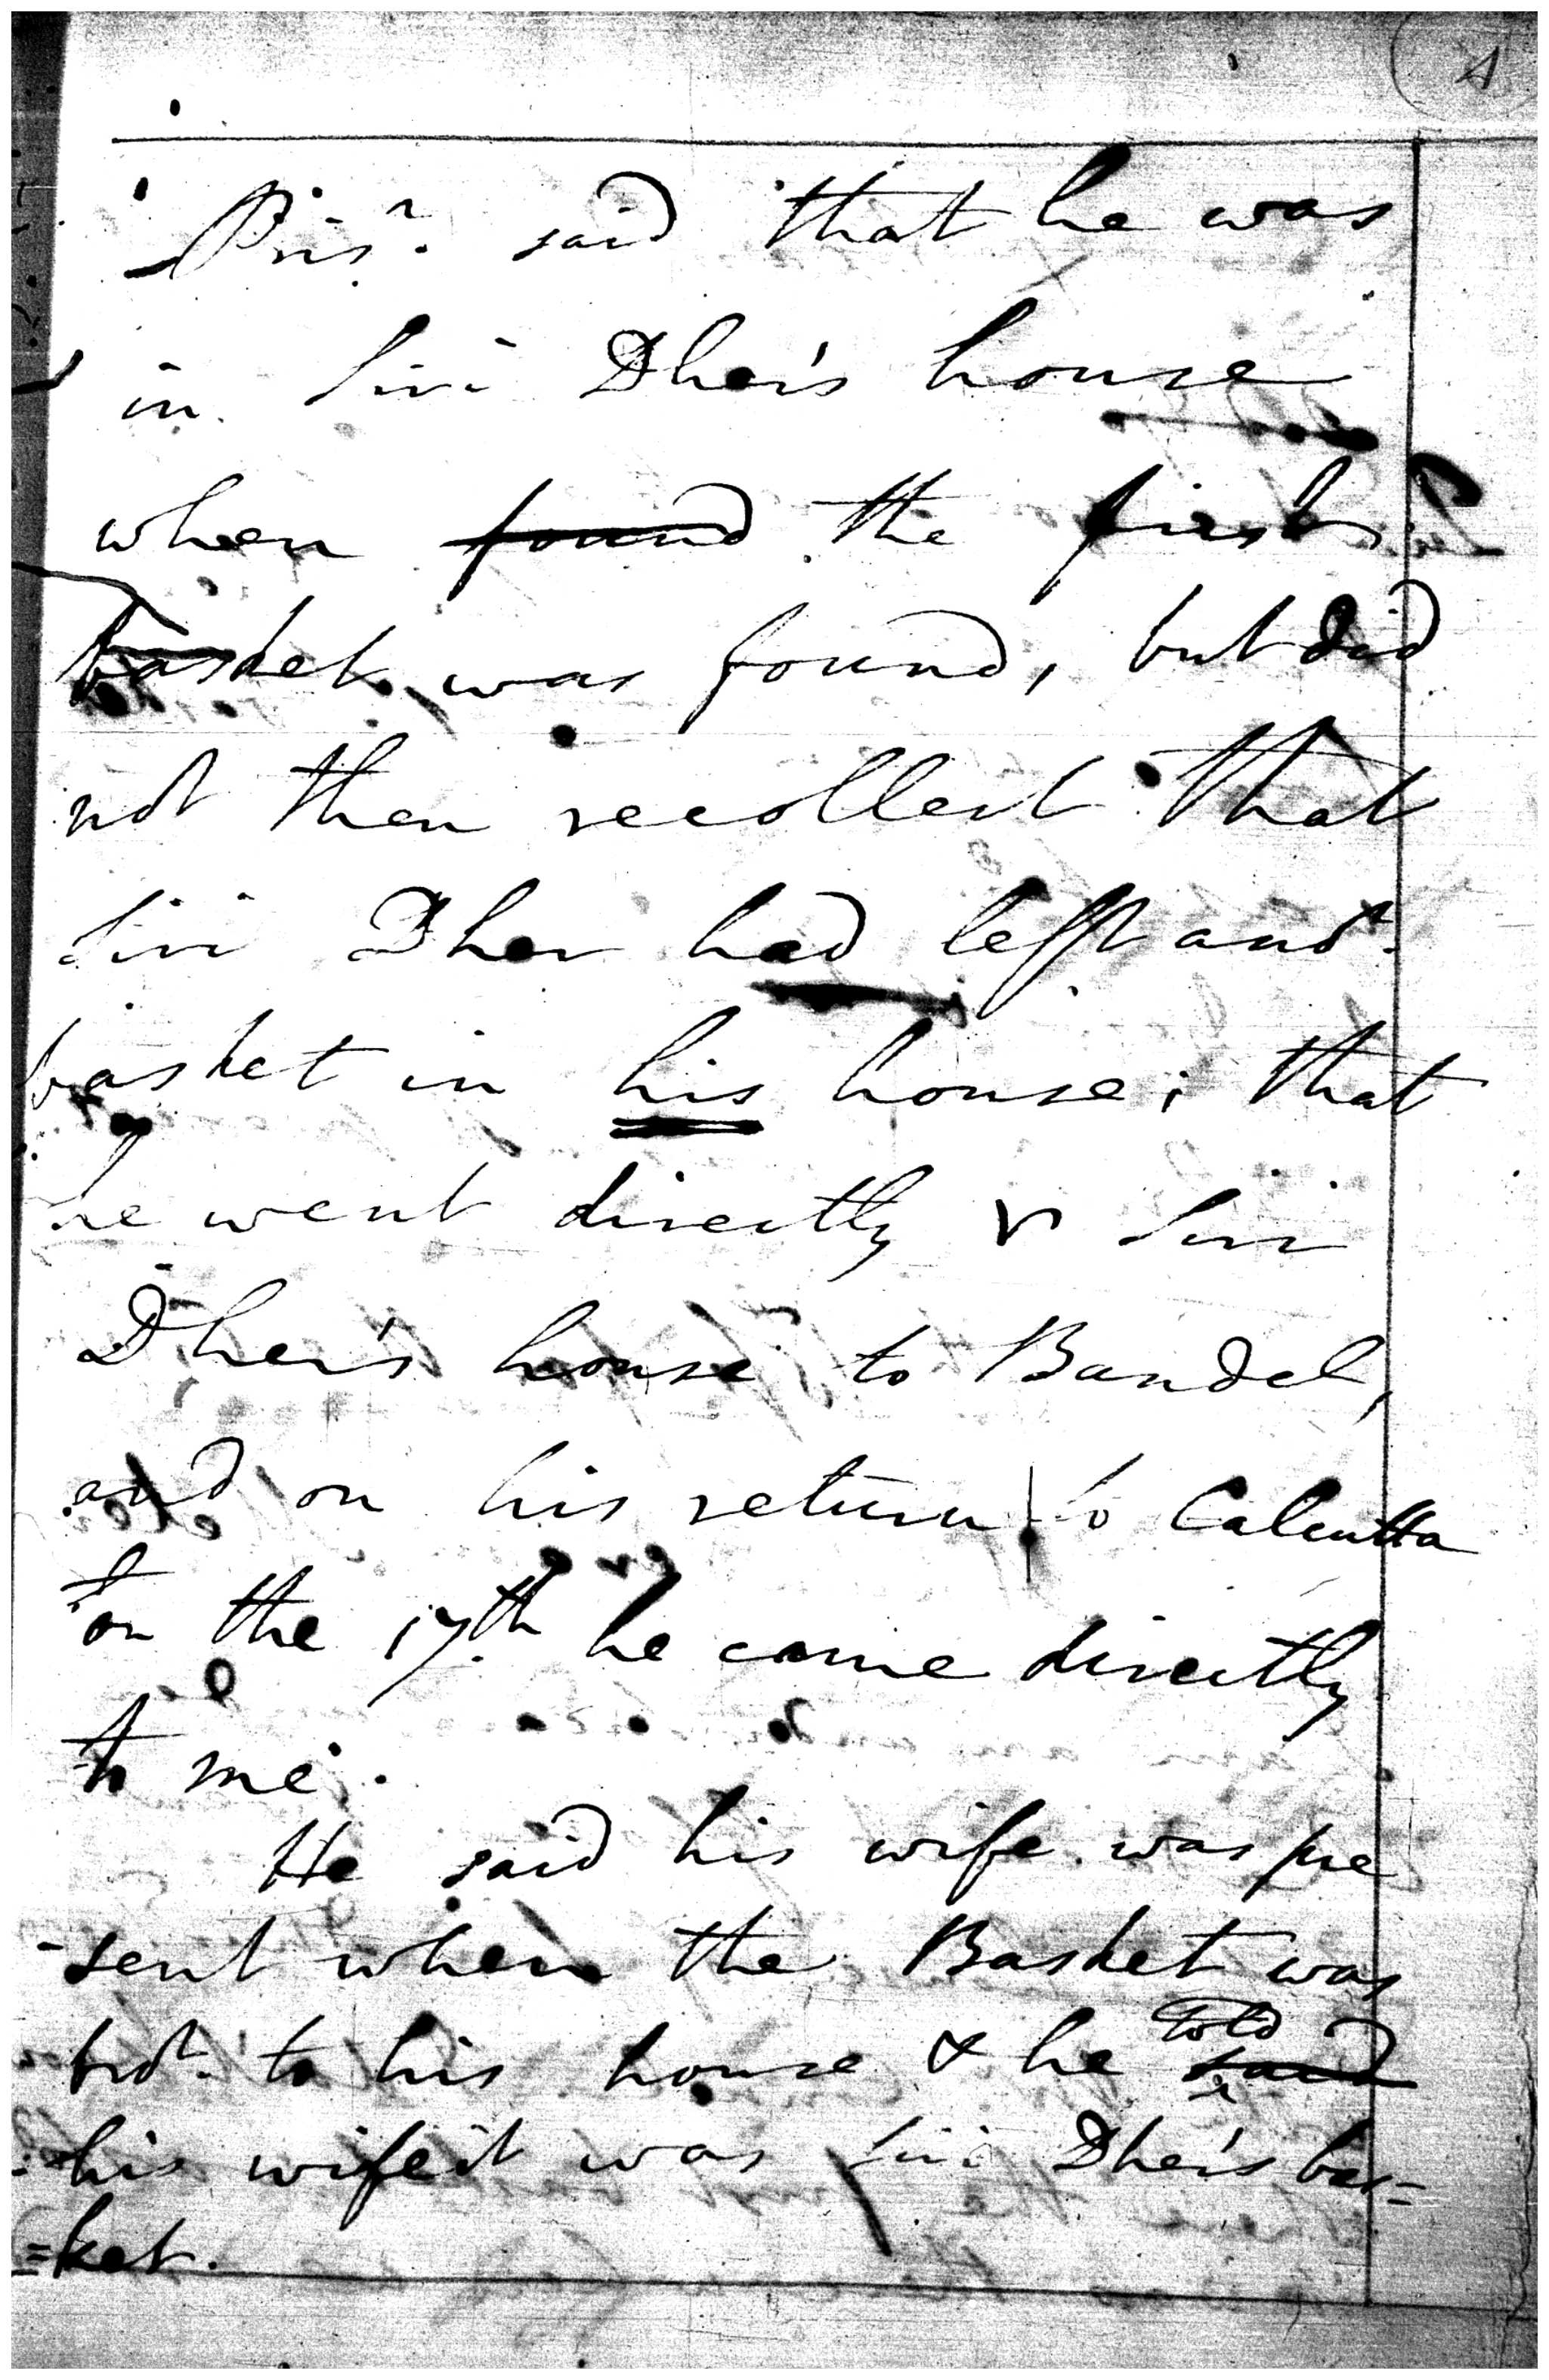 4
Pris.r said that he was
in Siri Dher's house
when found the first
basket was found, but did
not then recollect that
Siri Dher had left and.r
basket in his house; that
he went directly Siri
Dher's house to Bandel,
and on his return to Calcutta
on the 17.th he came directly
to me.
He said his wife was pre
-sent when the Basket was
bro.t to his house & he told said
his wife it was Siri Dher's bas=
=ket.